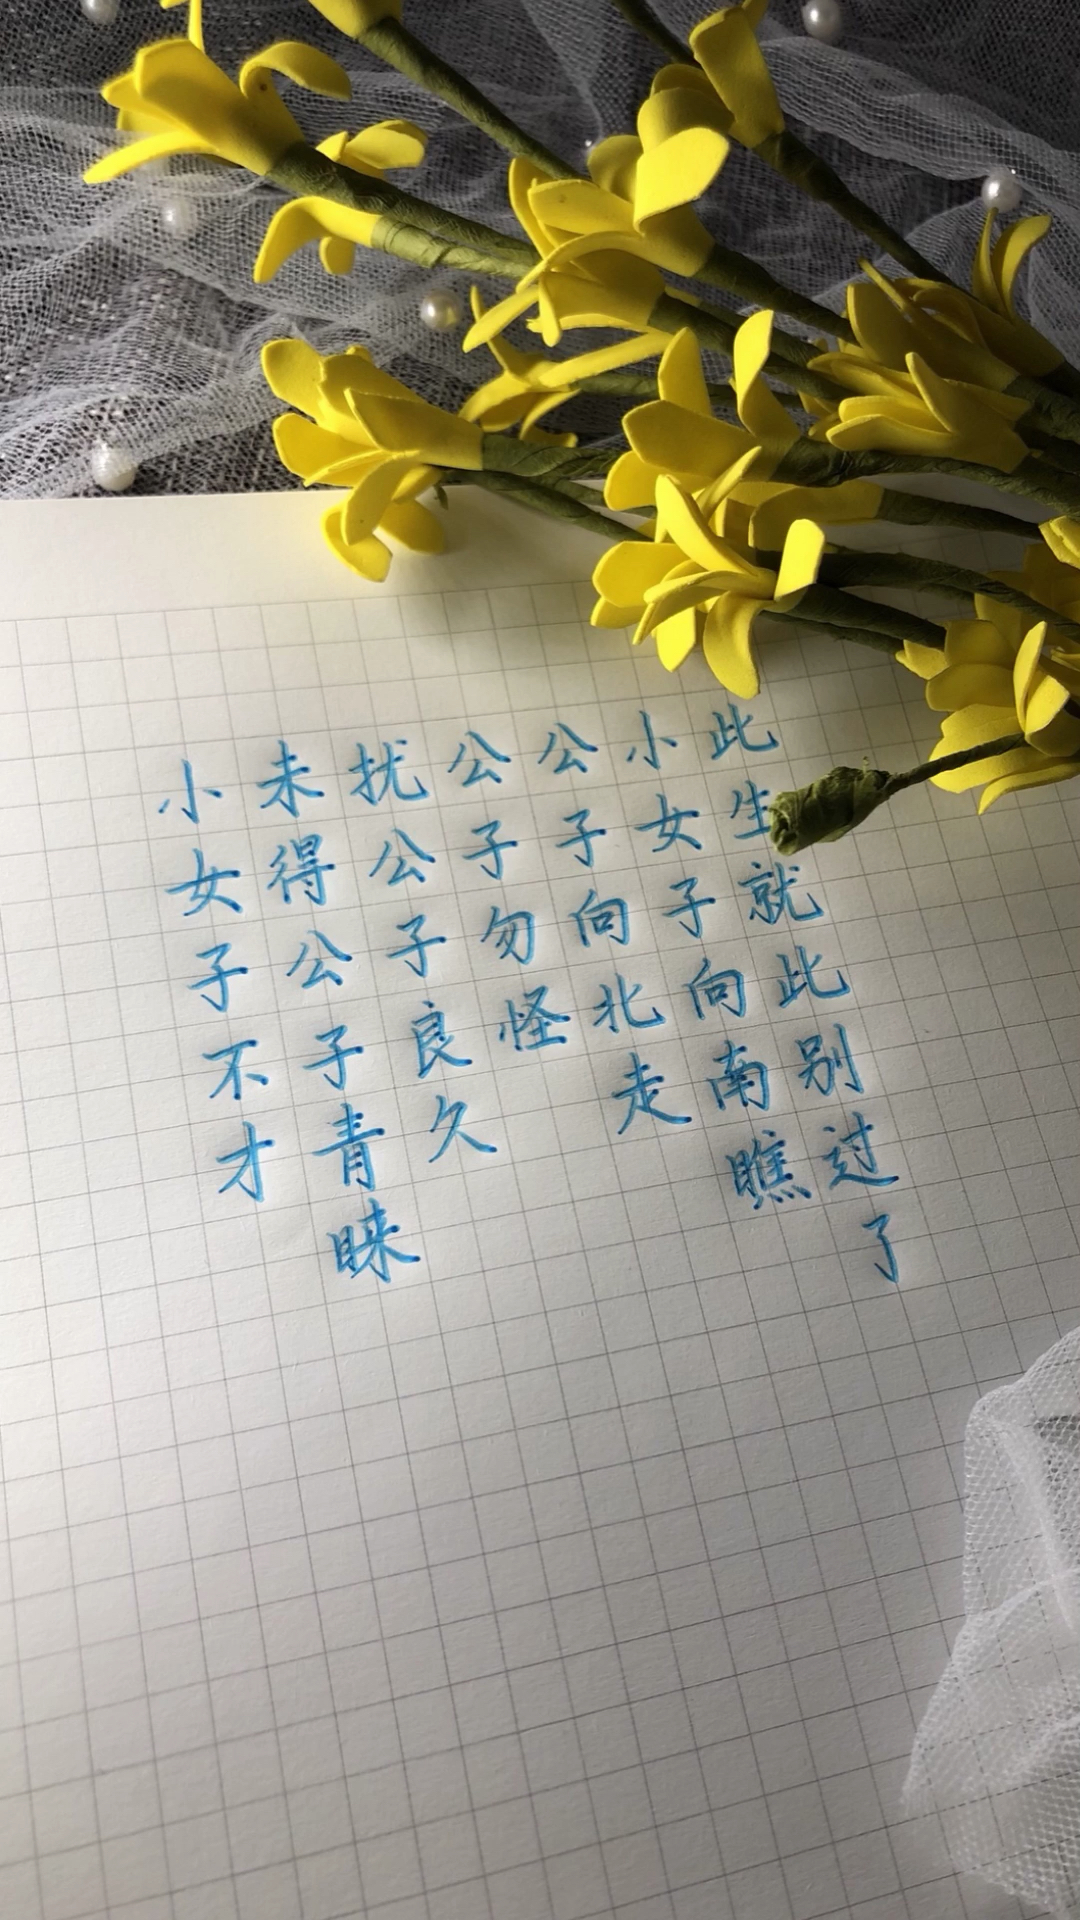 小女子不才
未得公子青睐
扰公子良久
公子勿怪
公子向北走
小女子向南瞧
此生就此别过了